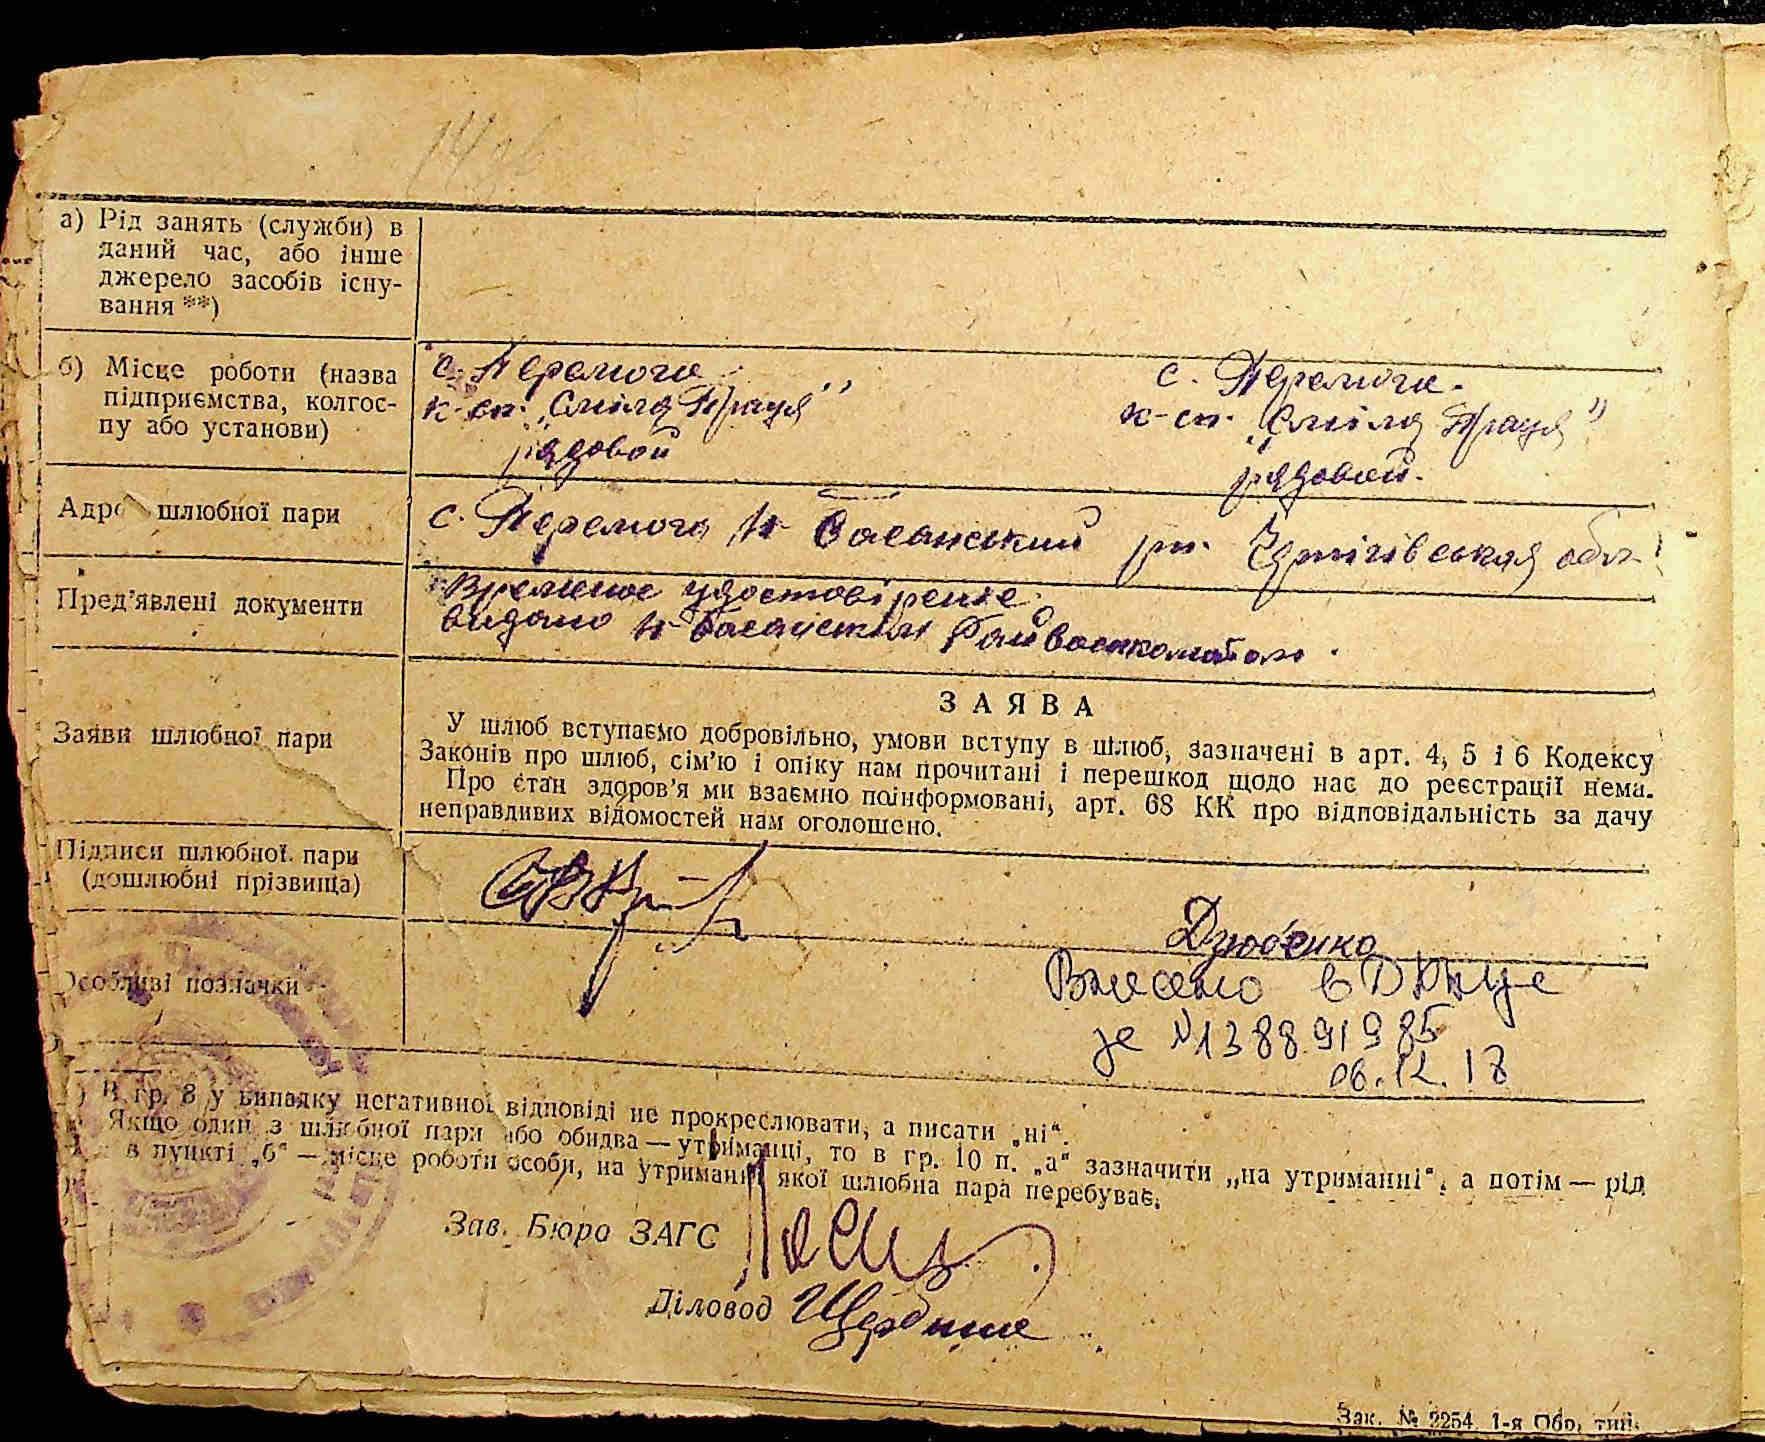 а) Рід занять (служби) в
даний час, або інше
джерело засобів існу-
вання **)
б) Місце роботи (назва
підприємства, колгос-
пу або установи)
с. Перемога
к-сп. „Сміла Праця"
рядовой
с. Перемога.
к-сп. „Сміла Праця"
рядовой.
Адре шлюбної пари
с. Перемога Н Басанський рн. Чернігівская обл
Пред'явлені документи
Временое удостовірение
видано Н-Басанським Райвоенкоматом.
Заяви шлюбної пари
ЗАЯВА
У шлюб вступаємо добровільно, умови вступу в шлюб, зазначені в арт. 4, 5 і 6 Кодексу
Законів про шлюб, сім'ю і опіку нам прочитані і перешкод щодо нас до реєстрації нема.
Про стан здоров'я ми взаємно поінформовані, арт. 68 КК про відповідальність за дачу
неправдивих відомостей нам оголошено.
Підписи шлюбної пари
(дошлюбні прізвища)
Дзюбенко
Особливі позначки
Внесено в
за №138891985
06.12.18
В гр. 8 у випадку негативної відповіді не прокреслювати, а писати „ні".
Якщо один з шлюбної пари або обидва — утриманці, то в гр. 10 п. „а" зазначити „на утриманні", а потім — рід
в пункті „б" — місце роботи особи, на утриманні якої шлюбна пара перебуває.
Зав. Бюро ЗАГС
Діловод Щербина
Зак. № 2254 1-я Обр. тип.